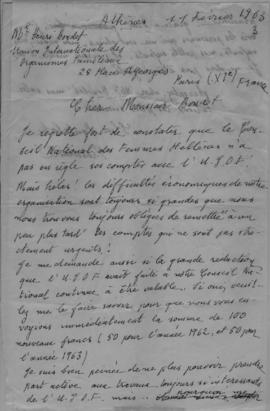 Athènes 17 Février 1963
3
Mr Henri Bodet
Union Internationale des
Organismes Familiaux
28 Place St Georges
Paris (IXe) France
Cher Monsieur Bodet
Je regrette fort de constater que le Con-
seil National des Femmes Hellènes n'a
pas en règle ses comptes avec l'U.I.O.F.
Mais hélas! les difficultés économiques de notre
organisation sont toujours si grandes que nous
nous trouvons toujours obligées de remettre à un
peu plus tard les comptes qui ne sont pas abso-
lument urgents!
Je me demande aussi si la grande réduction
que l'U.I.O.F. avait faite à notre Conseil Na-
tional continue à être valable. Si oui, veuil-
lez me le faire savoir pour que nous vous en-
voyons immédiatement la somme de 100
nouveaux francs (50 pour l'année 1962, et 50 pour
l'année 1963)
Je suis bien peinée de ne plus pouvoir prendre
part active aux travaux toujours si intéressants
de l'U.I.O.F. mais